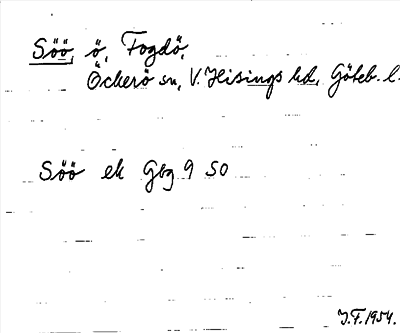 Söö, ö, Fogdö,
Öckerö sn, V. Hisings hd, Göteb. l.
Söö ek Gbg 9 SO
J.F. 1954.